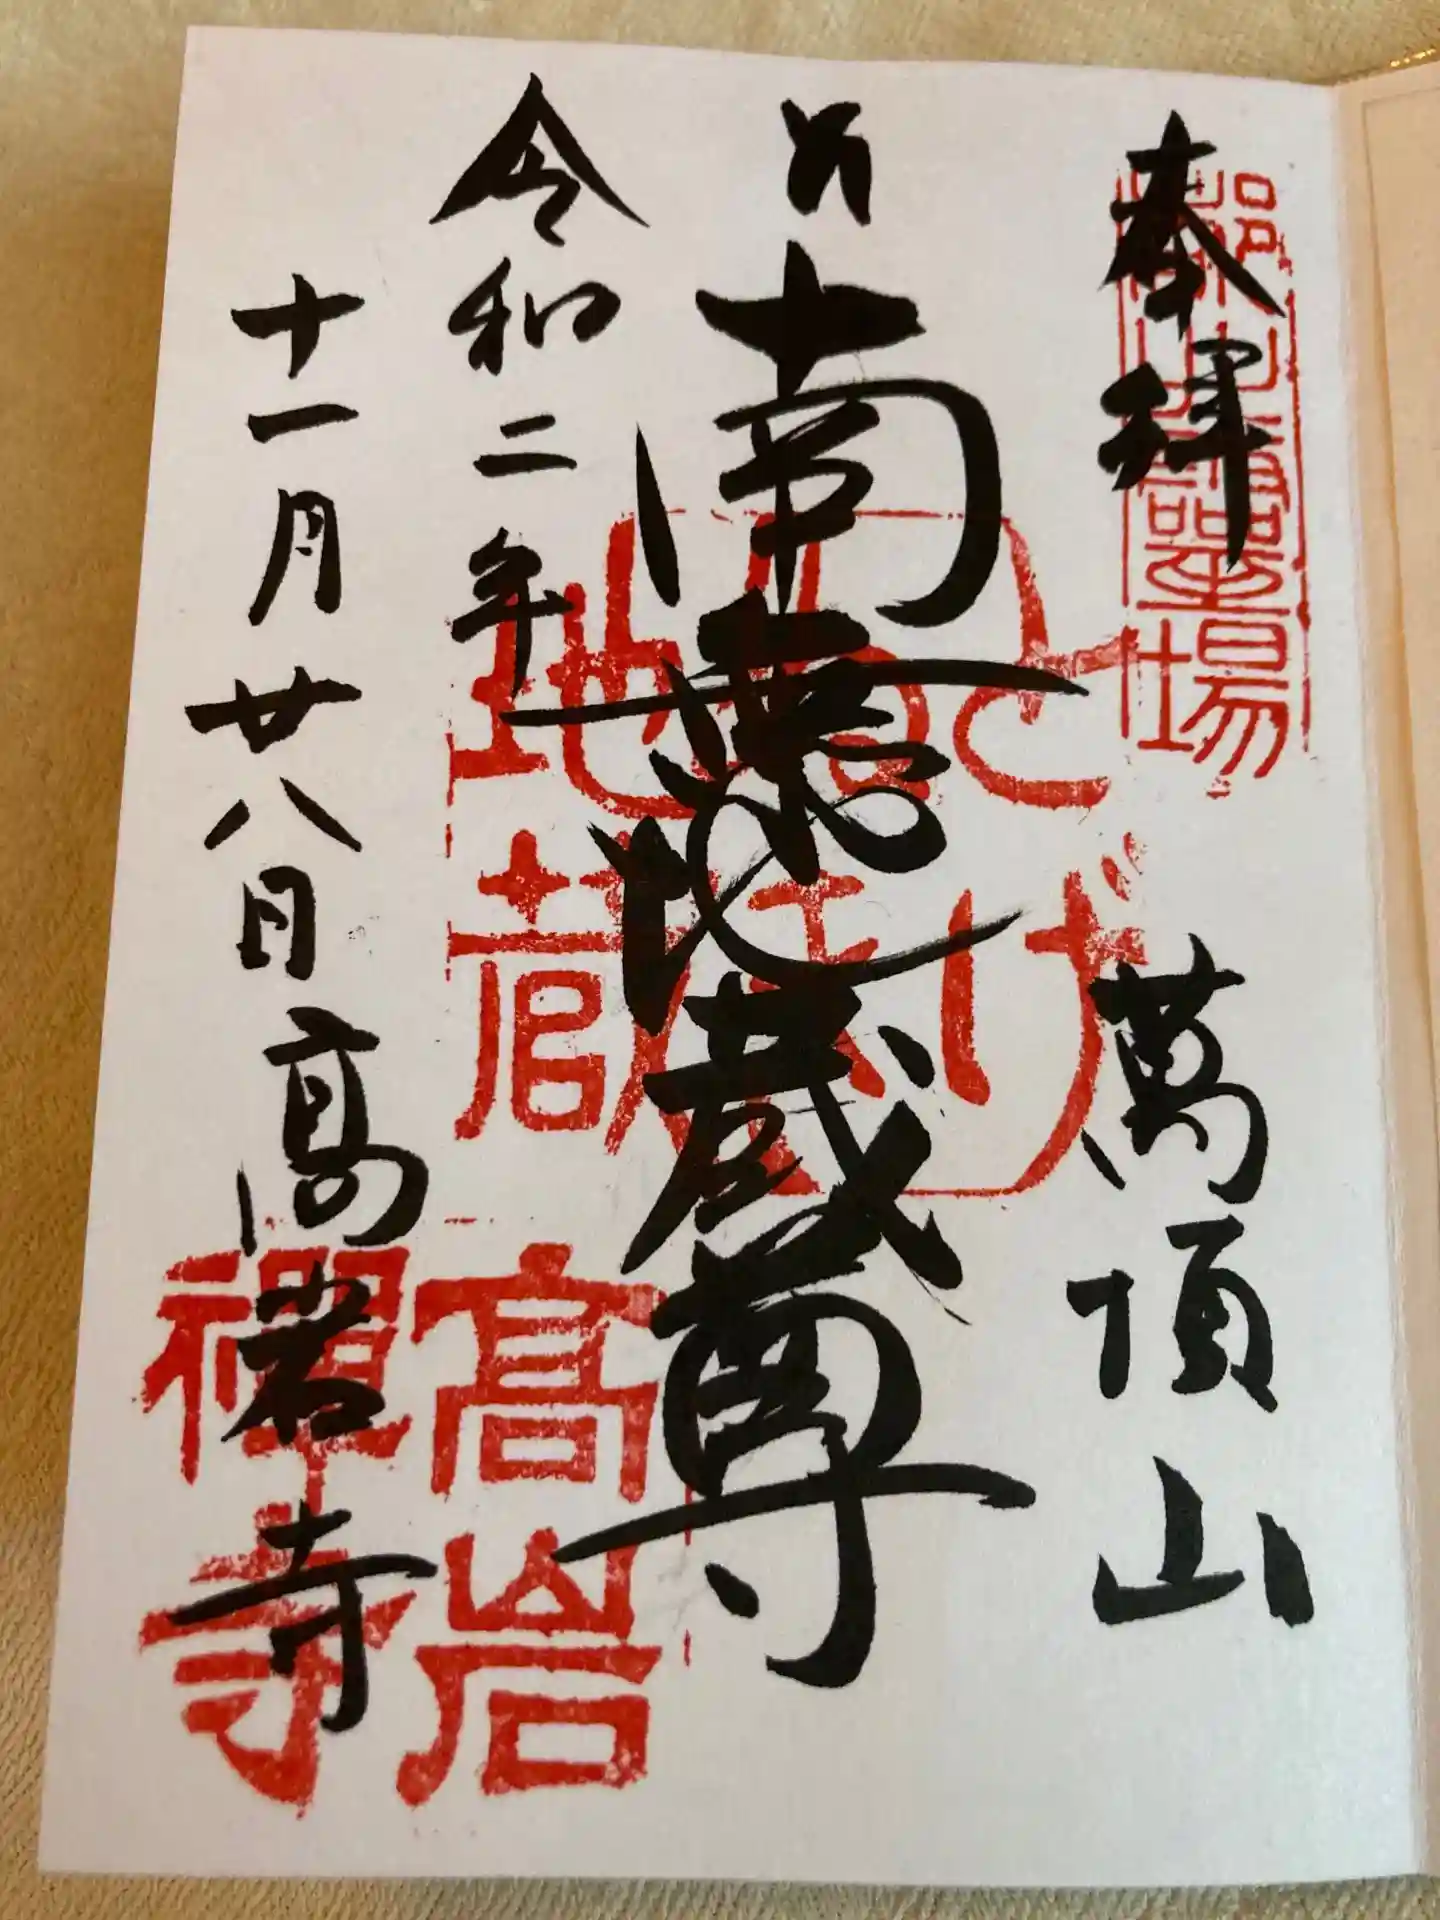 奉拝
萬頂山
南無地蔵尊
令和二年
十一月廿八日
高岩寺
霊場
とげ
ぬき
地蔵
髙岩
禪寺